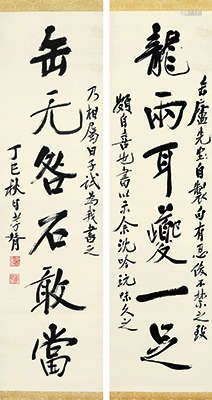 缶廬先生自製句有忍俊不禁之致
龍兩耳夔一足
頗自喜也書以示余沈吟玩味久之
乃相屬曰子試為我書之
缶无咎石敢當
丁巳秋日孝胥